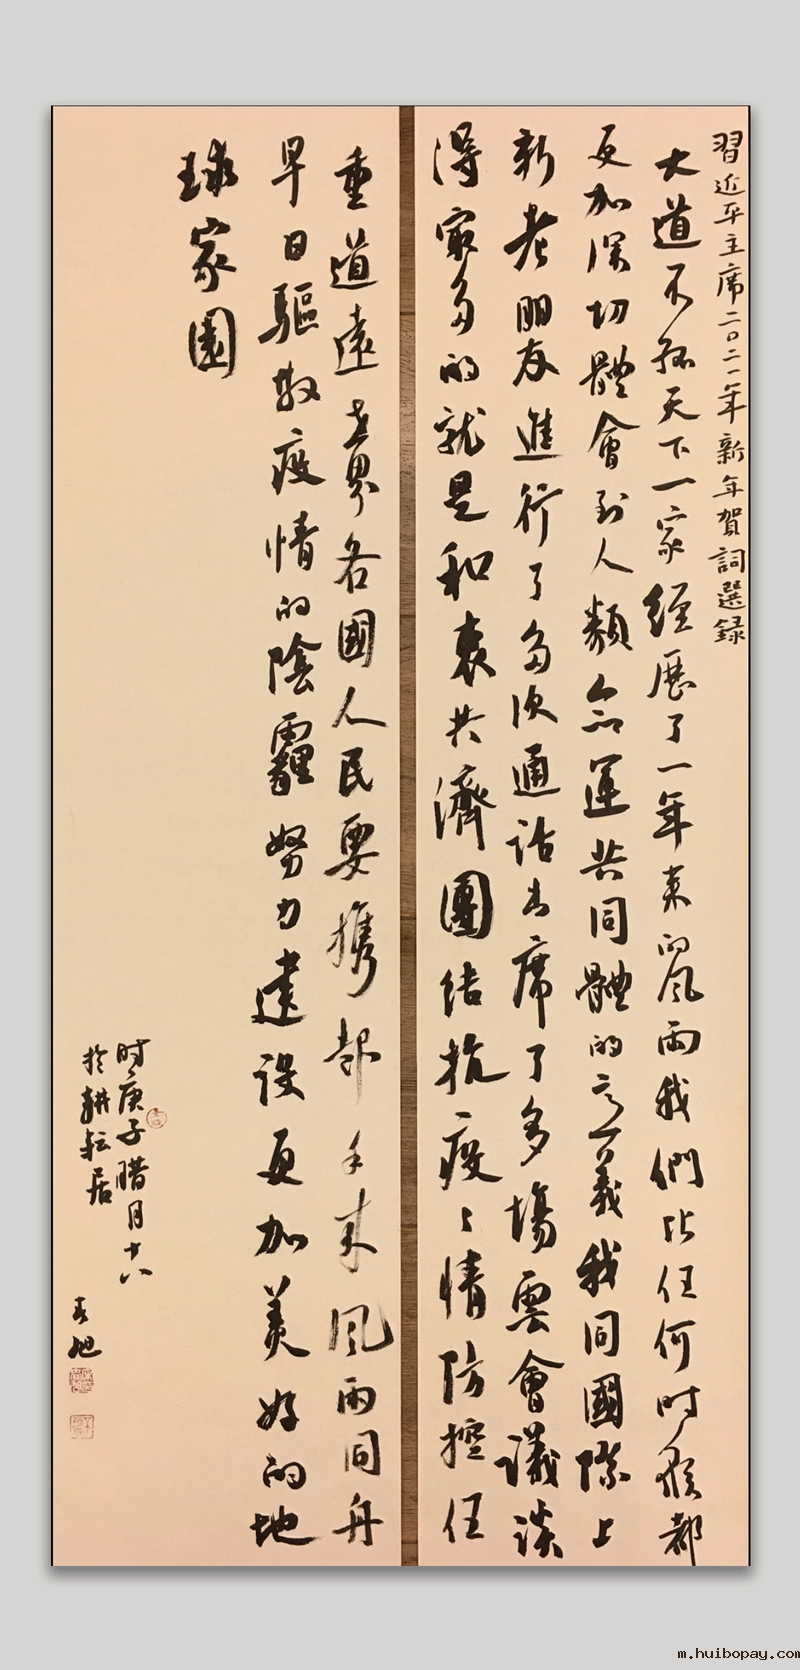 習近平主席二〇二一年新年賀詞選録
大道不孤天下一家經歷了一年来的风雨我們比任何时候都
更加深切體會到人類命運共同體的意義我同國際上
新老朋友進行了多次通话出席了多場雲會議谈
得最多的就是和衷共濟團结抗疫疫情防控任
重道遠世界各國人民要携起手来风雨同舟
早日驅散疫情的陰霾努力建设更加美好的地
球家園
时庚子腊月十八
於耕耘居
m.huibopay.com